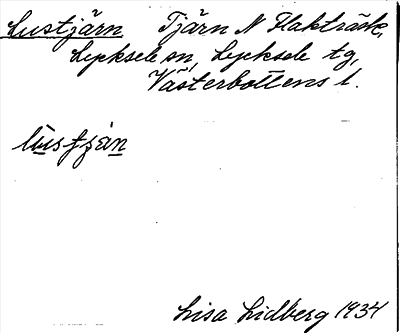 Lustjärn Tjärn N Flakträsk,
Lycksele sn, Lycksele tg,
Västerbottens l.
lùstjàn
Lisa Lidberg 1934